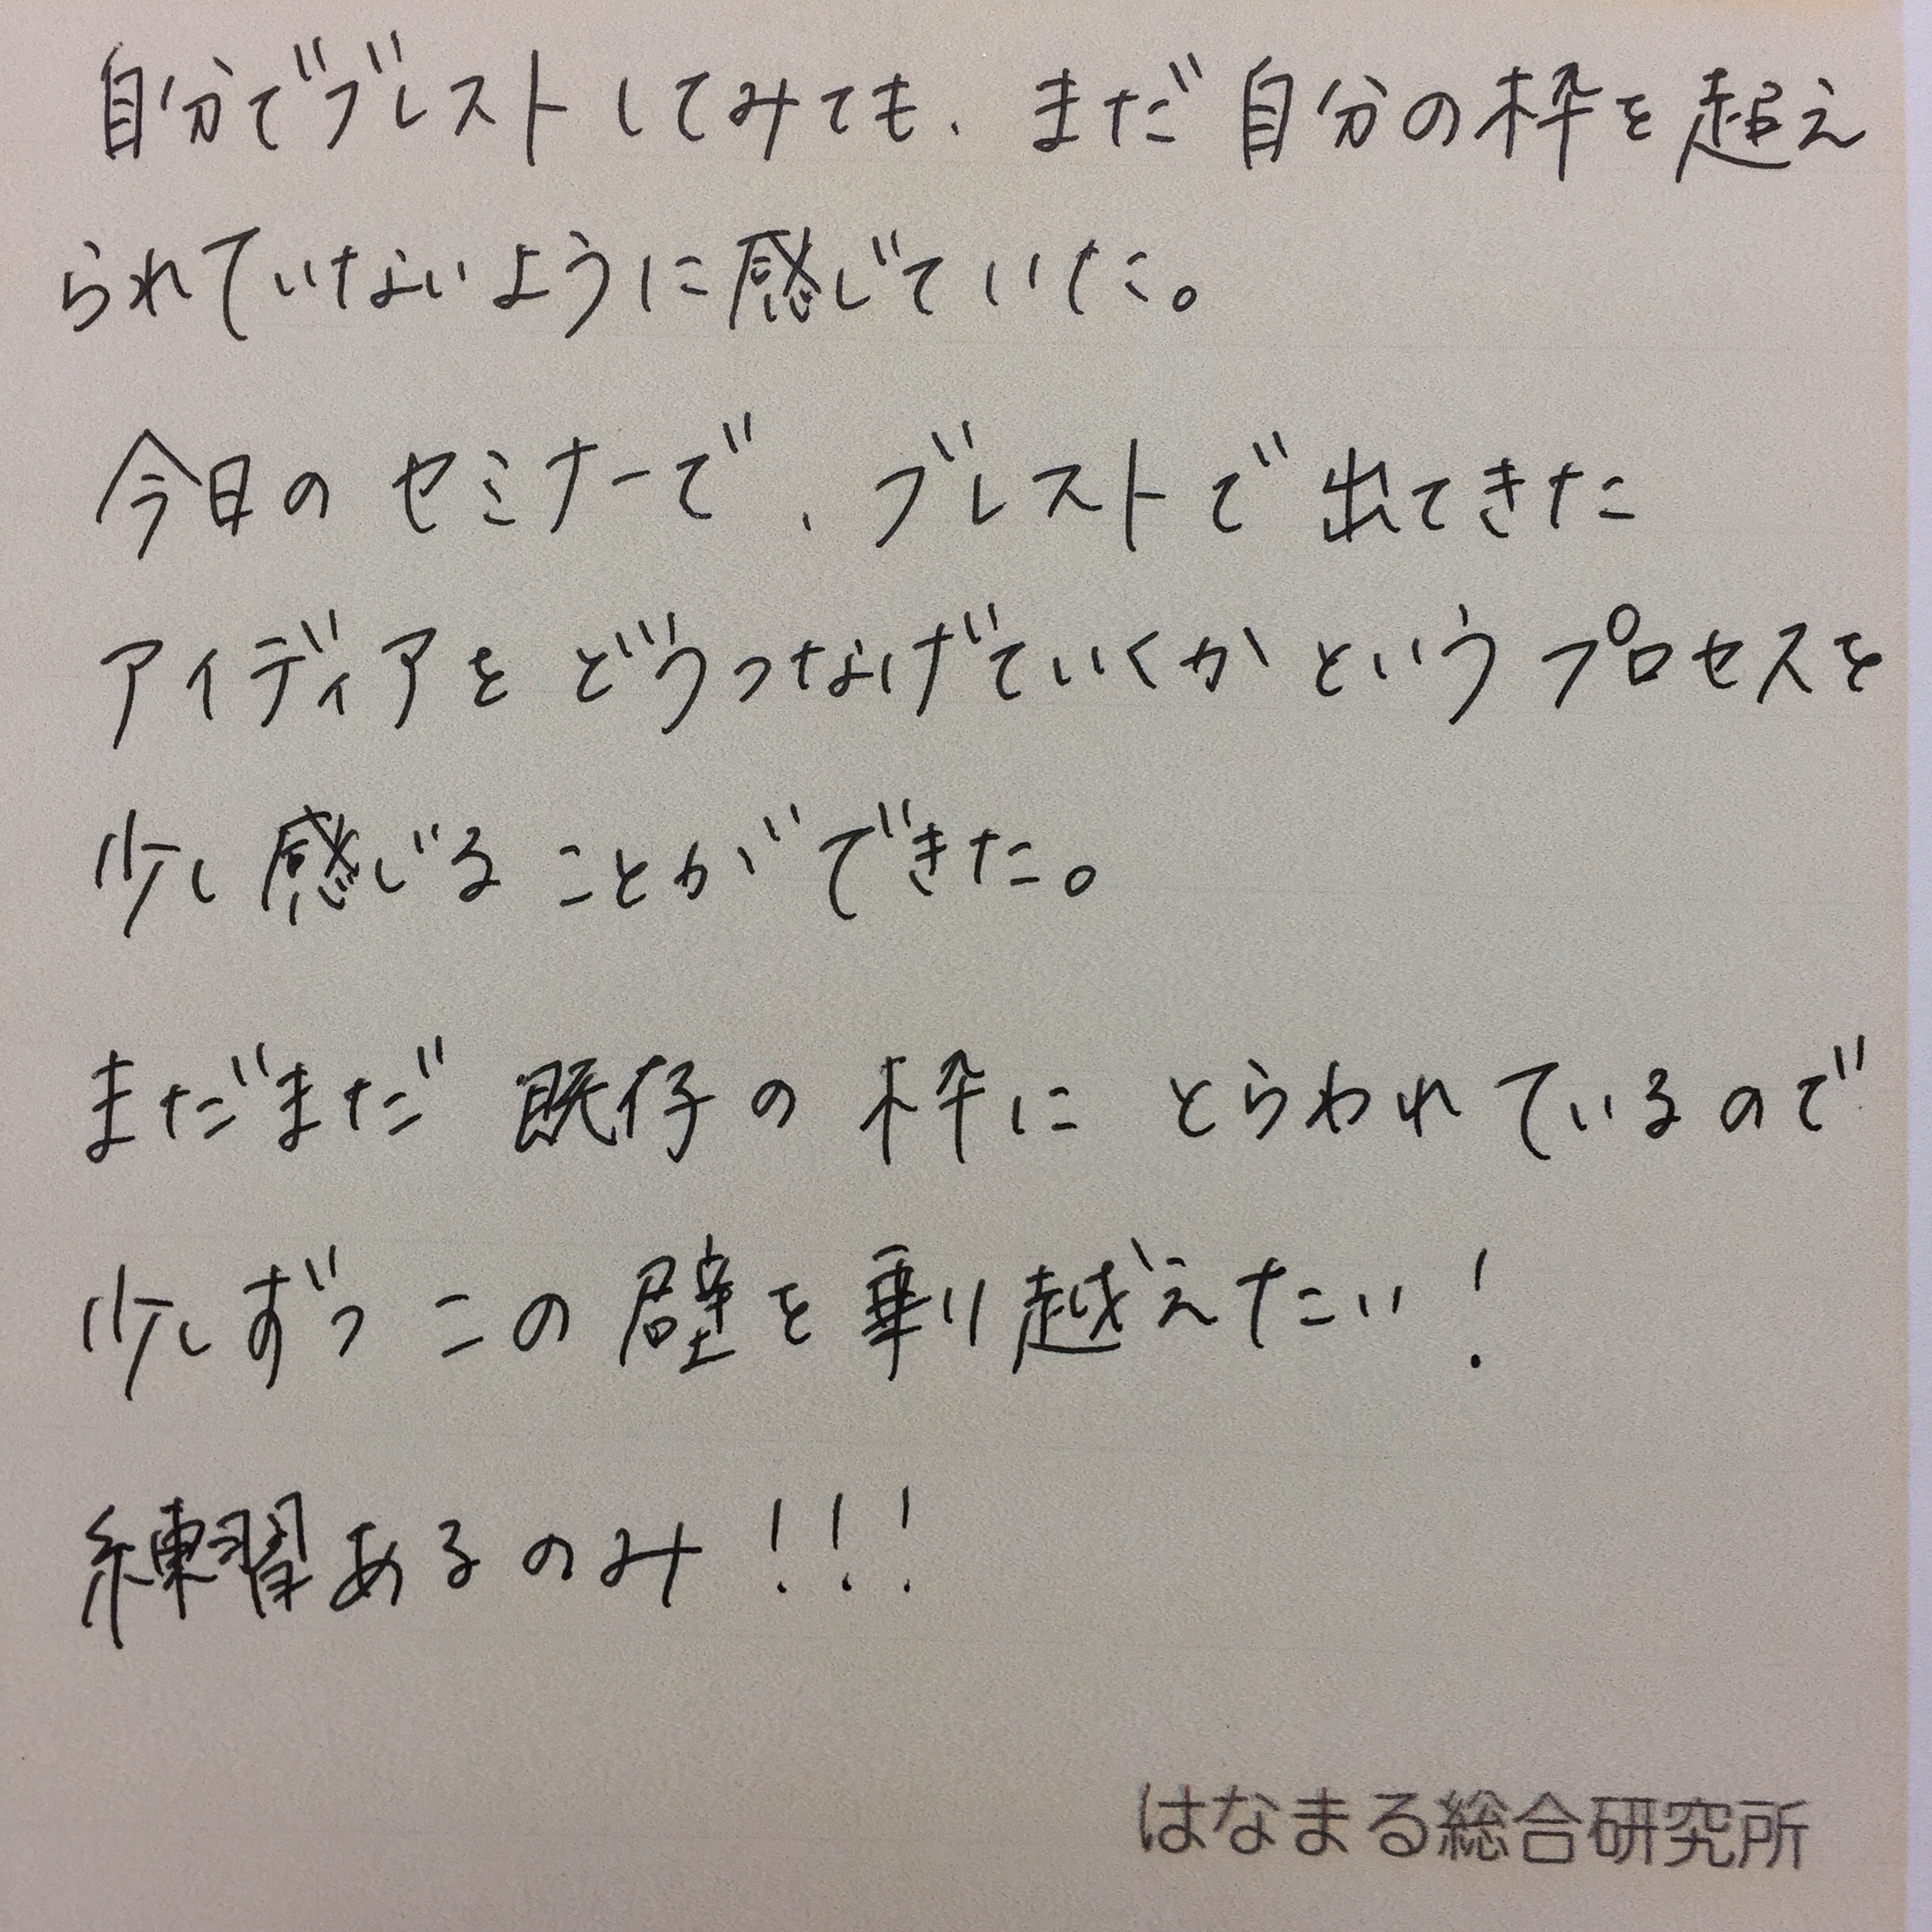 自分でブレストしてみても、まだ自分の枠を超え
られていないように感じていた。
今日のセミナーで、ブレストで出てきた
アイディアをどうつなげていくかというプロセスを
少し感じることができた。
まだまだ既存の枠にとらわれているので
少しずつこの壁を乗り越えたい!
練習あるのみ!!!
はなまる総合研究所